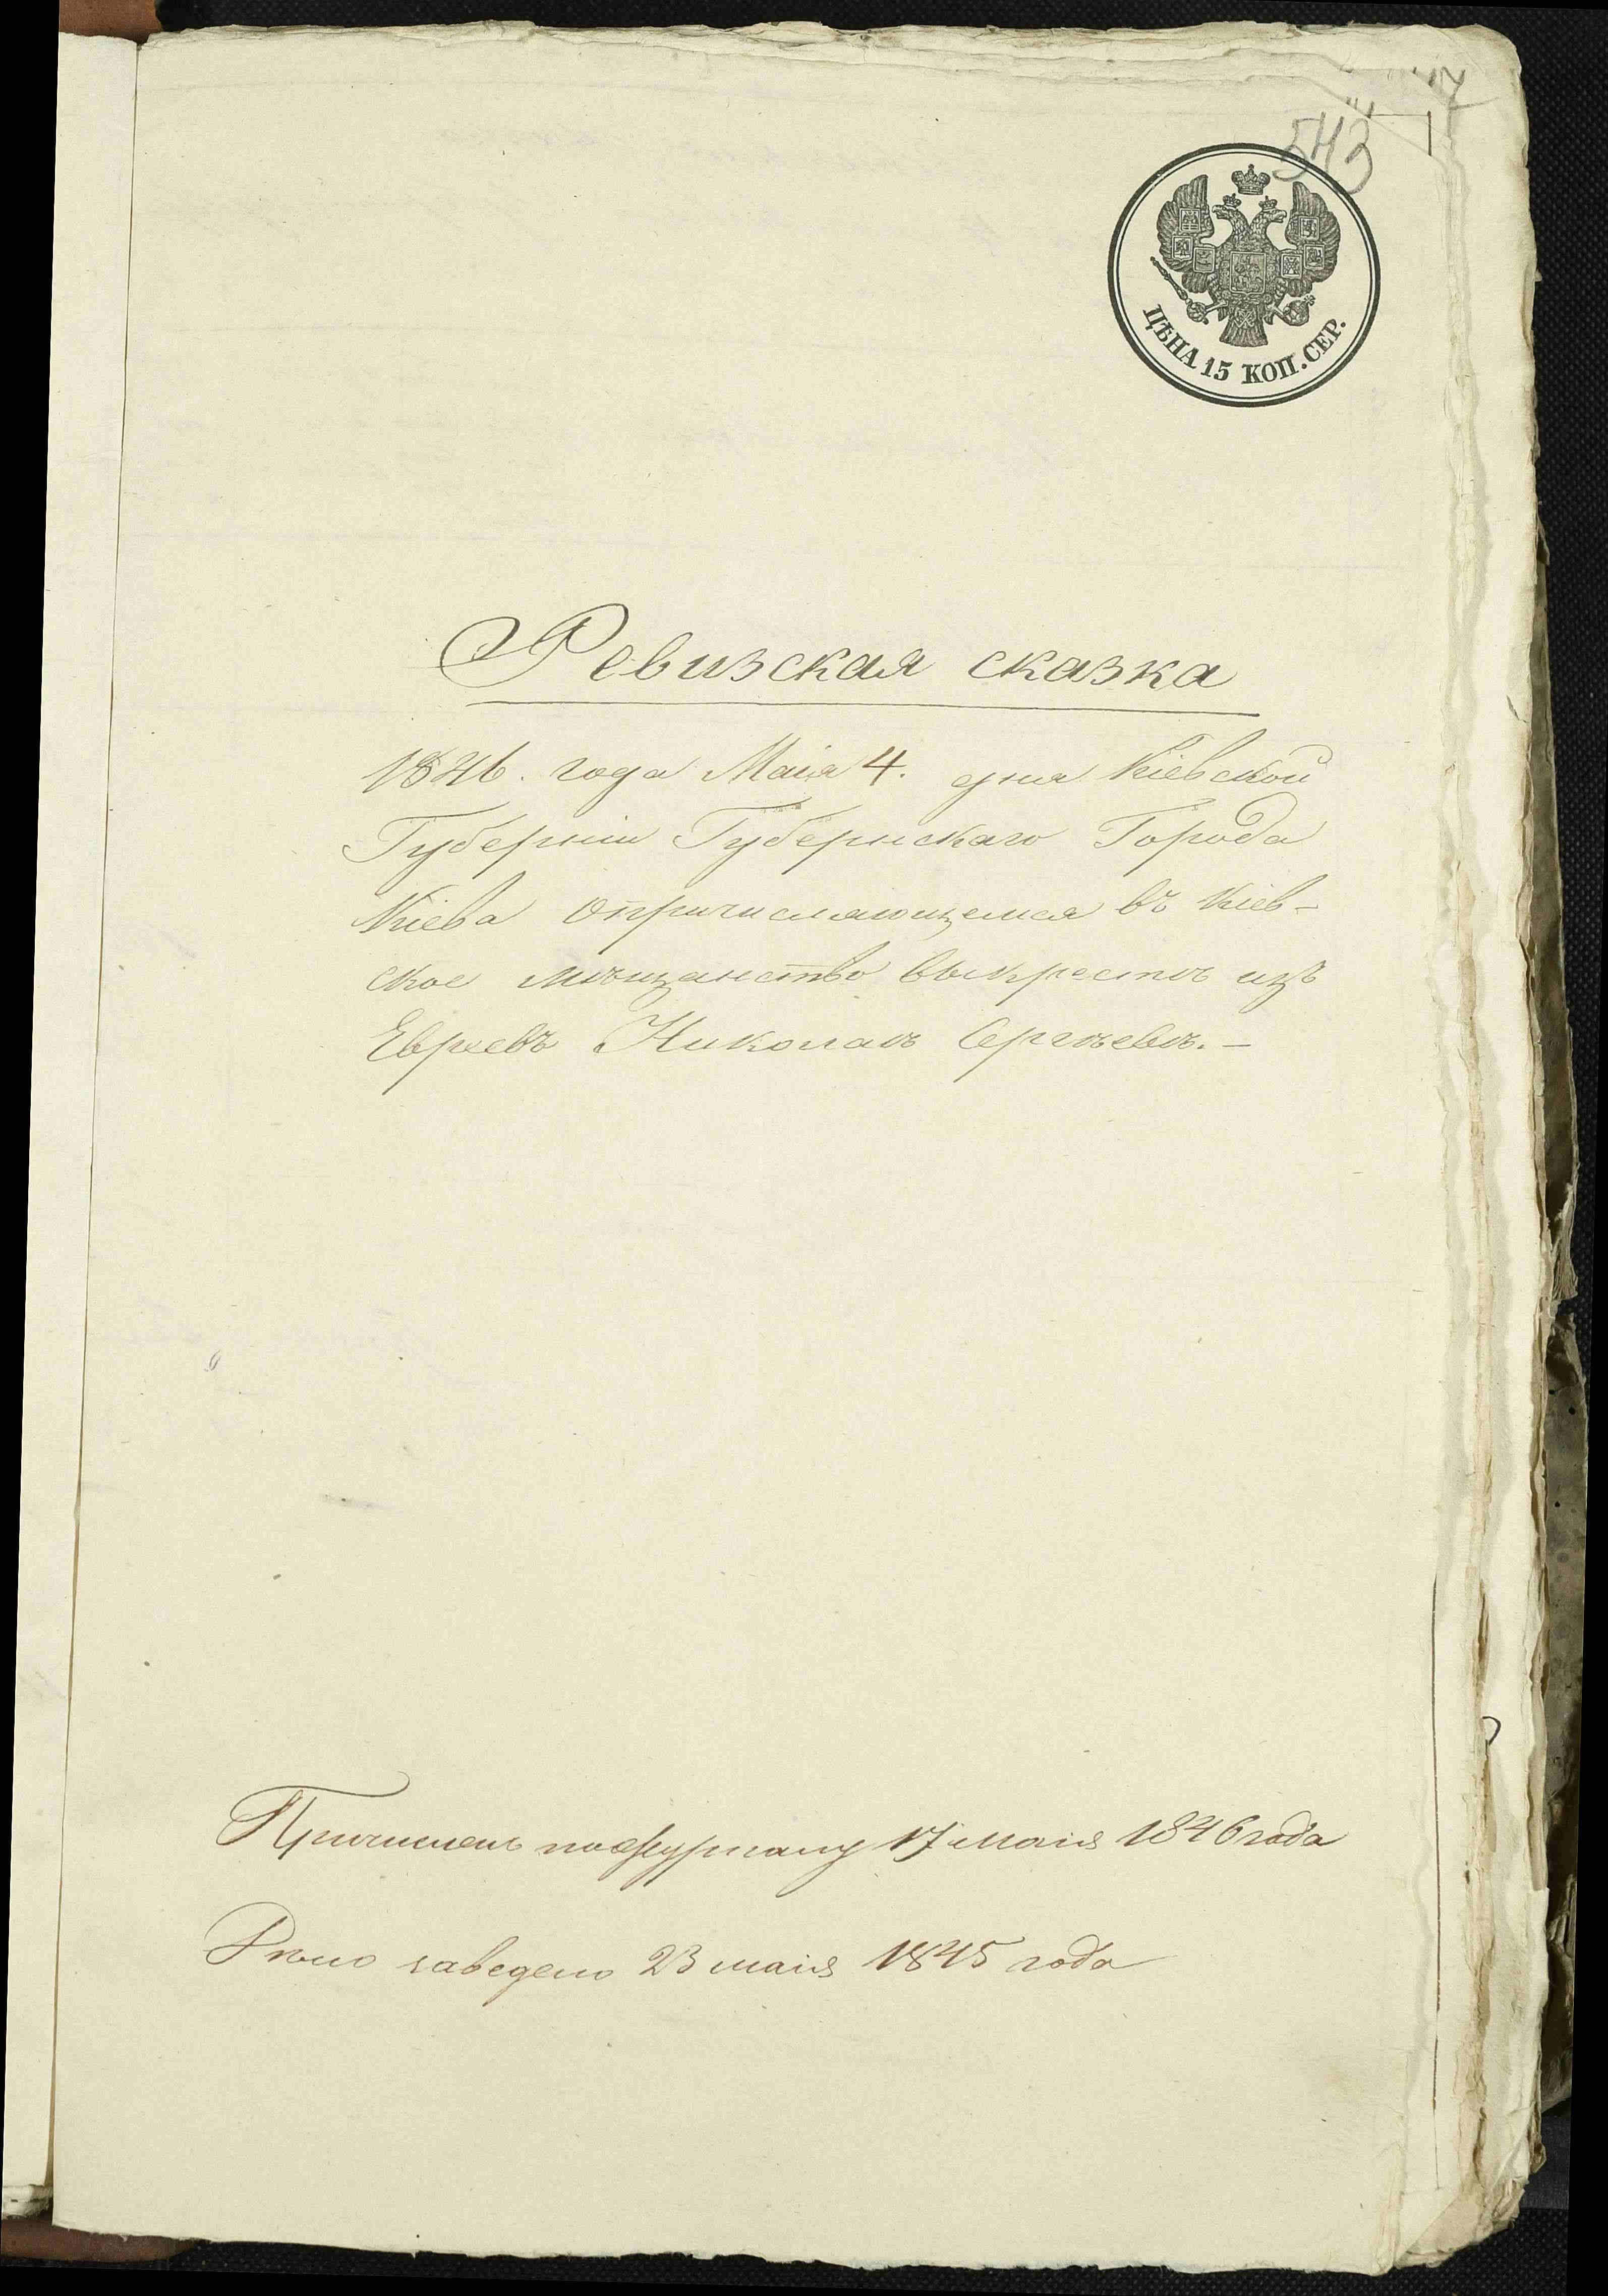 543
ЦѢНА 15 КОП. СЕР.
Ревизская сказка
1846. года Маія 4. дня Кіевской
Губерніи Губернскаго Города
Кіева опричисляющемся въ Кіев-
ское мѣщанство выкрестѣ изъ
Евреевъ Николаѣ Сергѣевѣ. –
Причисленъ по журналу 17 маія 1846 года
Дѣло заведено 23 маія 1845 года